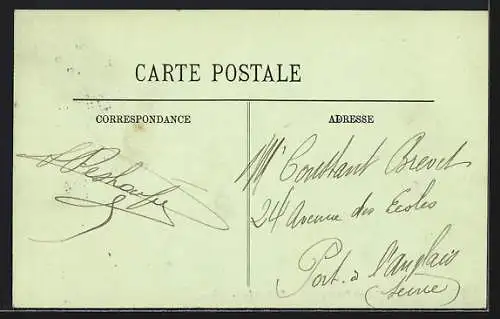 CARTE POSTALE
CORRESPONDANCE
ADRESSE
Mr Constant Brevet
24 Avenue des Ecoles
Port-à l'anglais
(Seine)